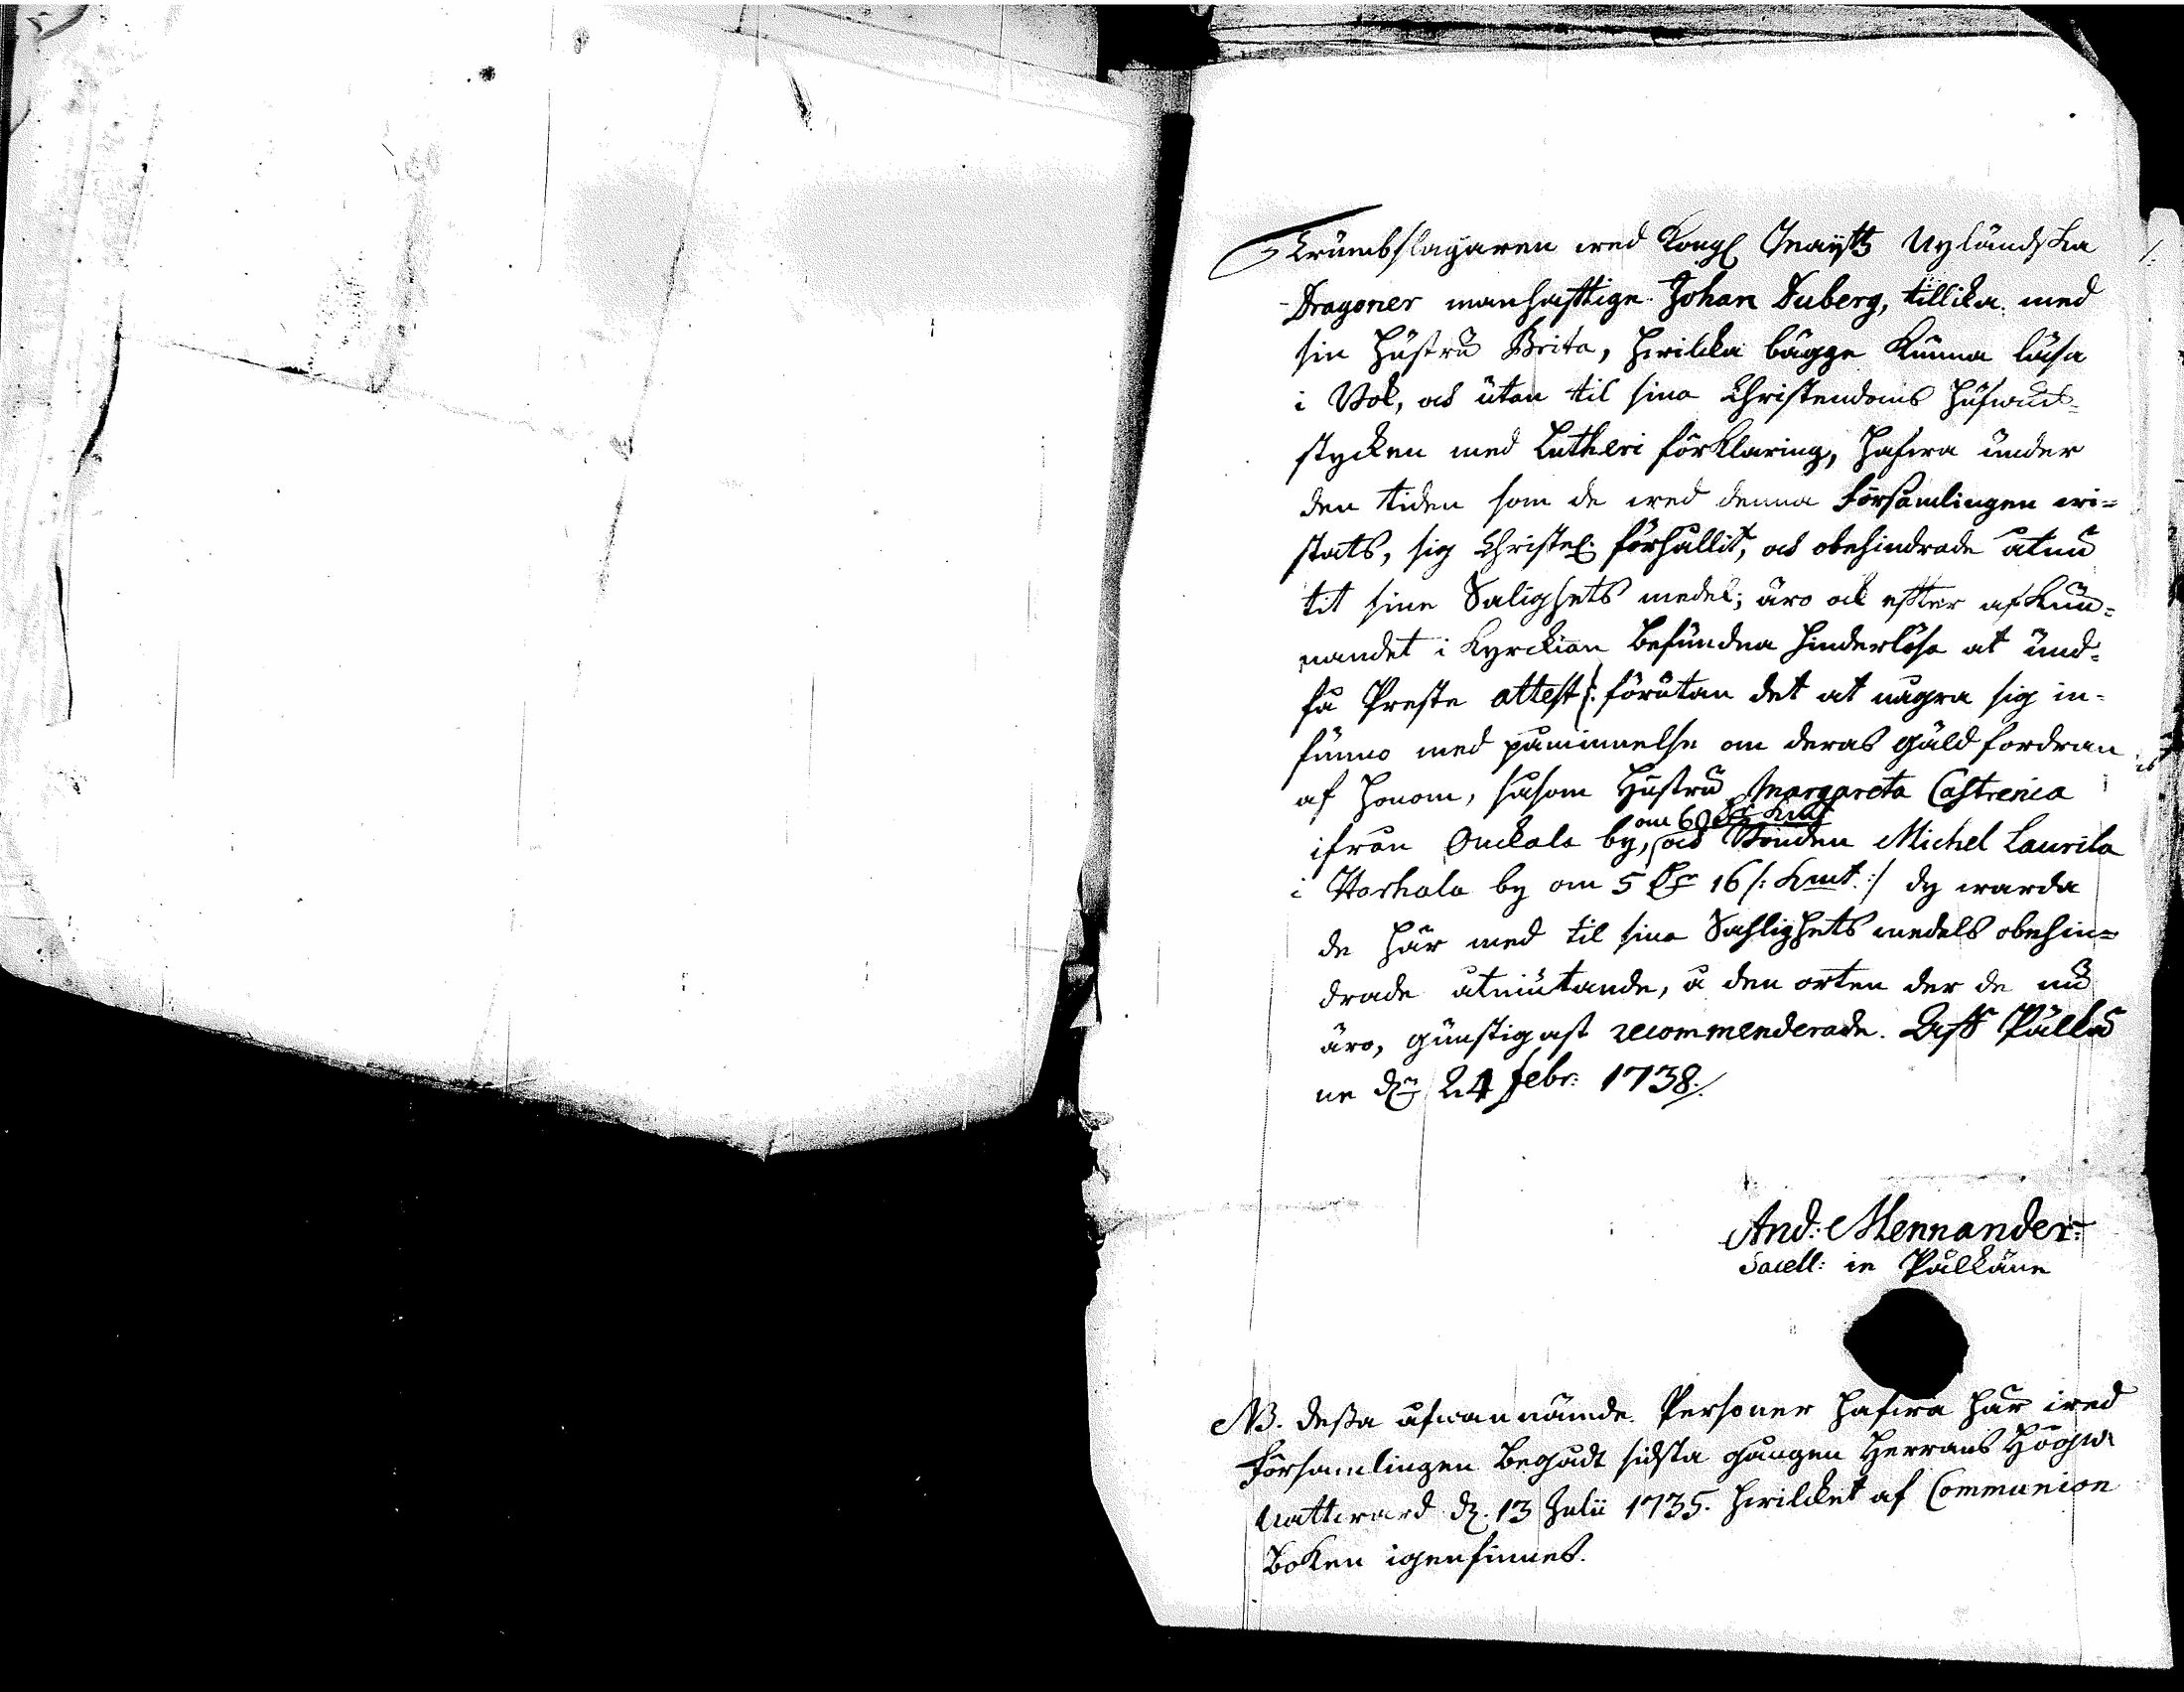 Trumbslagaren wed Kongl Maÿtz Nyländska
Dragoner manhafftige Johan Duberg, tillika med
sin Hustru Brita, hwilcka bägge kunna läsa
i Bok, och utan til sina Christendoms Hufwud-
stycken med Lutheri förklaring, hafwa under
den tiden som de wed denna Församlingen wi=
stats, sig Christel. förhållit, och obehindrade åtnu
tit sine Salighets medel; äro ock effter afkun-
nandet i Kyrckian befundna hinderlösa at und-
få Preste attest /: förutan det at några sig in-
funno med påminnelse om deras gäld fordran
af honom, såsom Hustru Margareta Castrenia
ifrån Onckala by, om 60 och Bonden Michel Laurila
i Harhala by om 5 16 /: Kmt. :/ dy warda
de här med til sina Sahlighets medels obehin=
drade åtniutande, å den orten der de nu
äro, gunstigast recommenderade. Aff Pälkä
ne dn 24 Febr: 1738./.
And: Mennander:
Sacell: in Pälkäne
NB. Dessa ofwannämde Personer hafwa här wed
Församlingen begådt sidsta gången Herrans Högw
Nattward d. 13 Julii 1735. hwilcket af Communion
Boken igenfinnes.